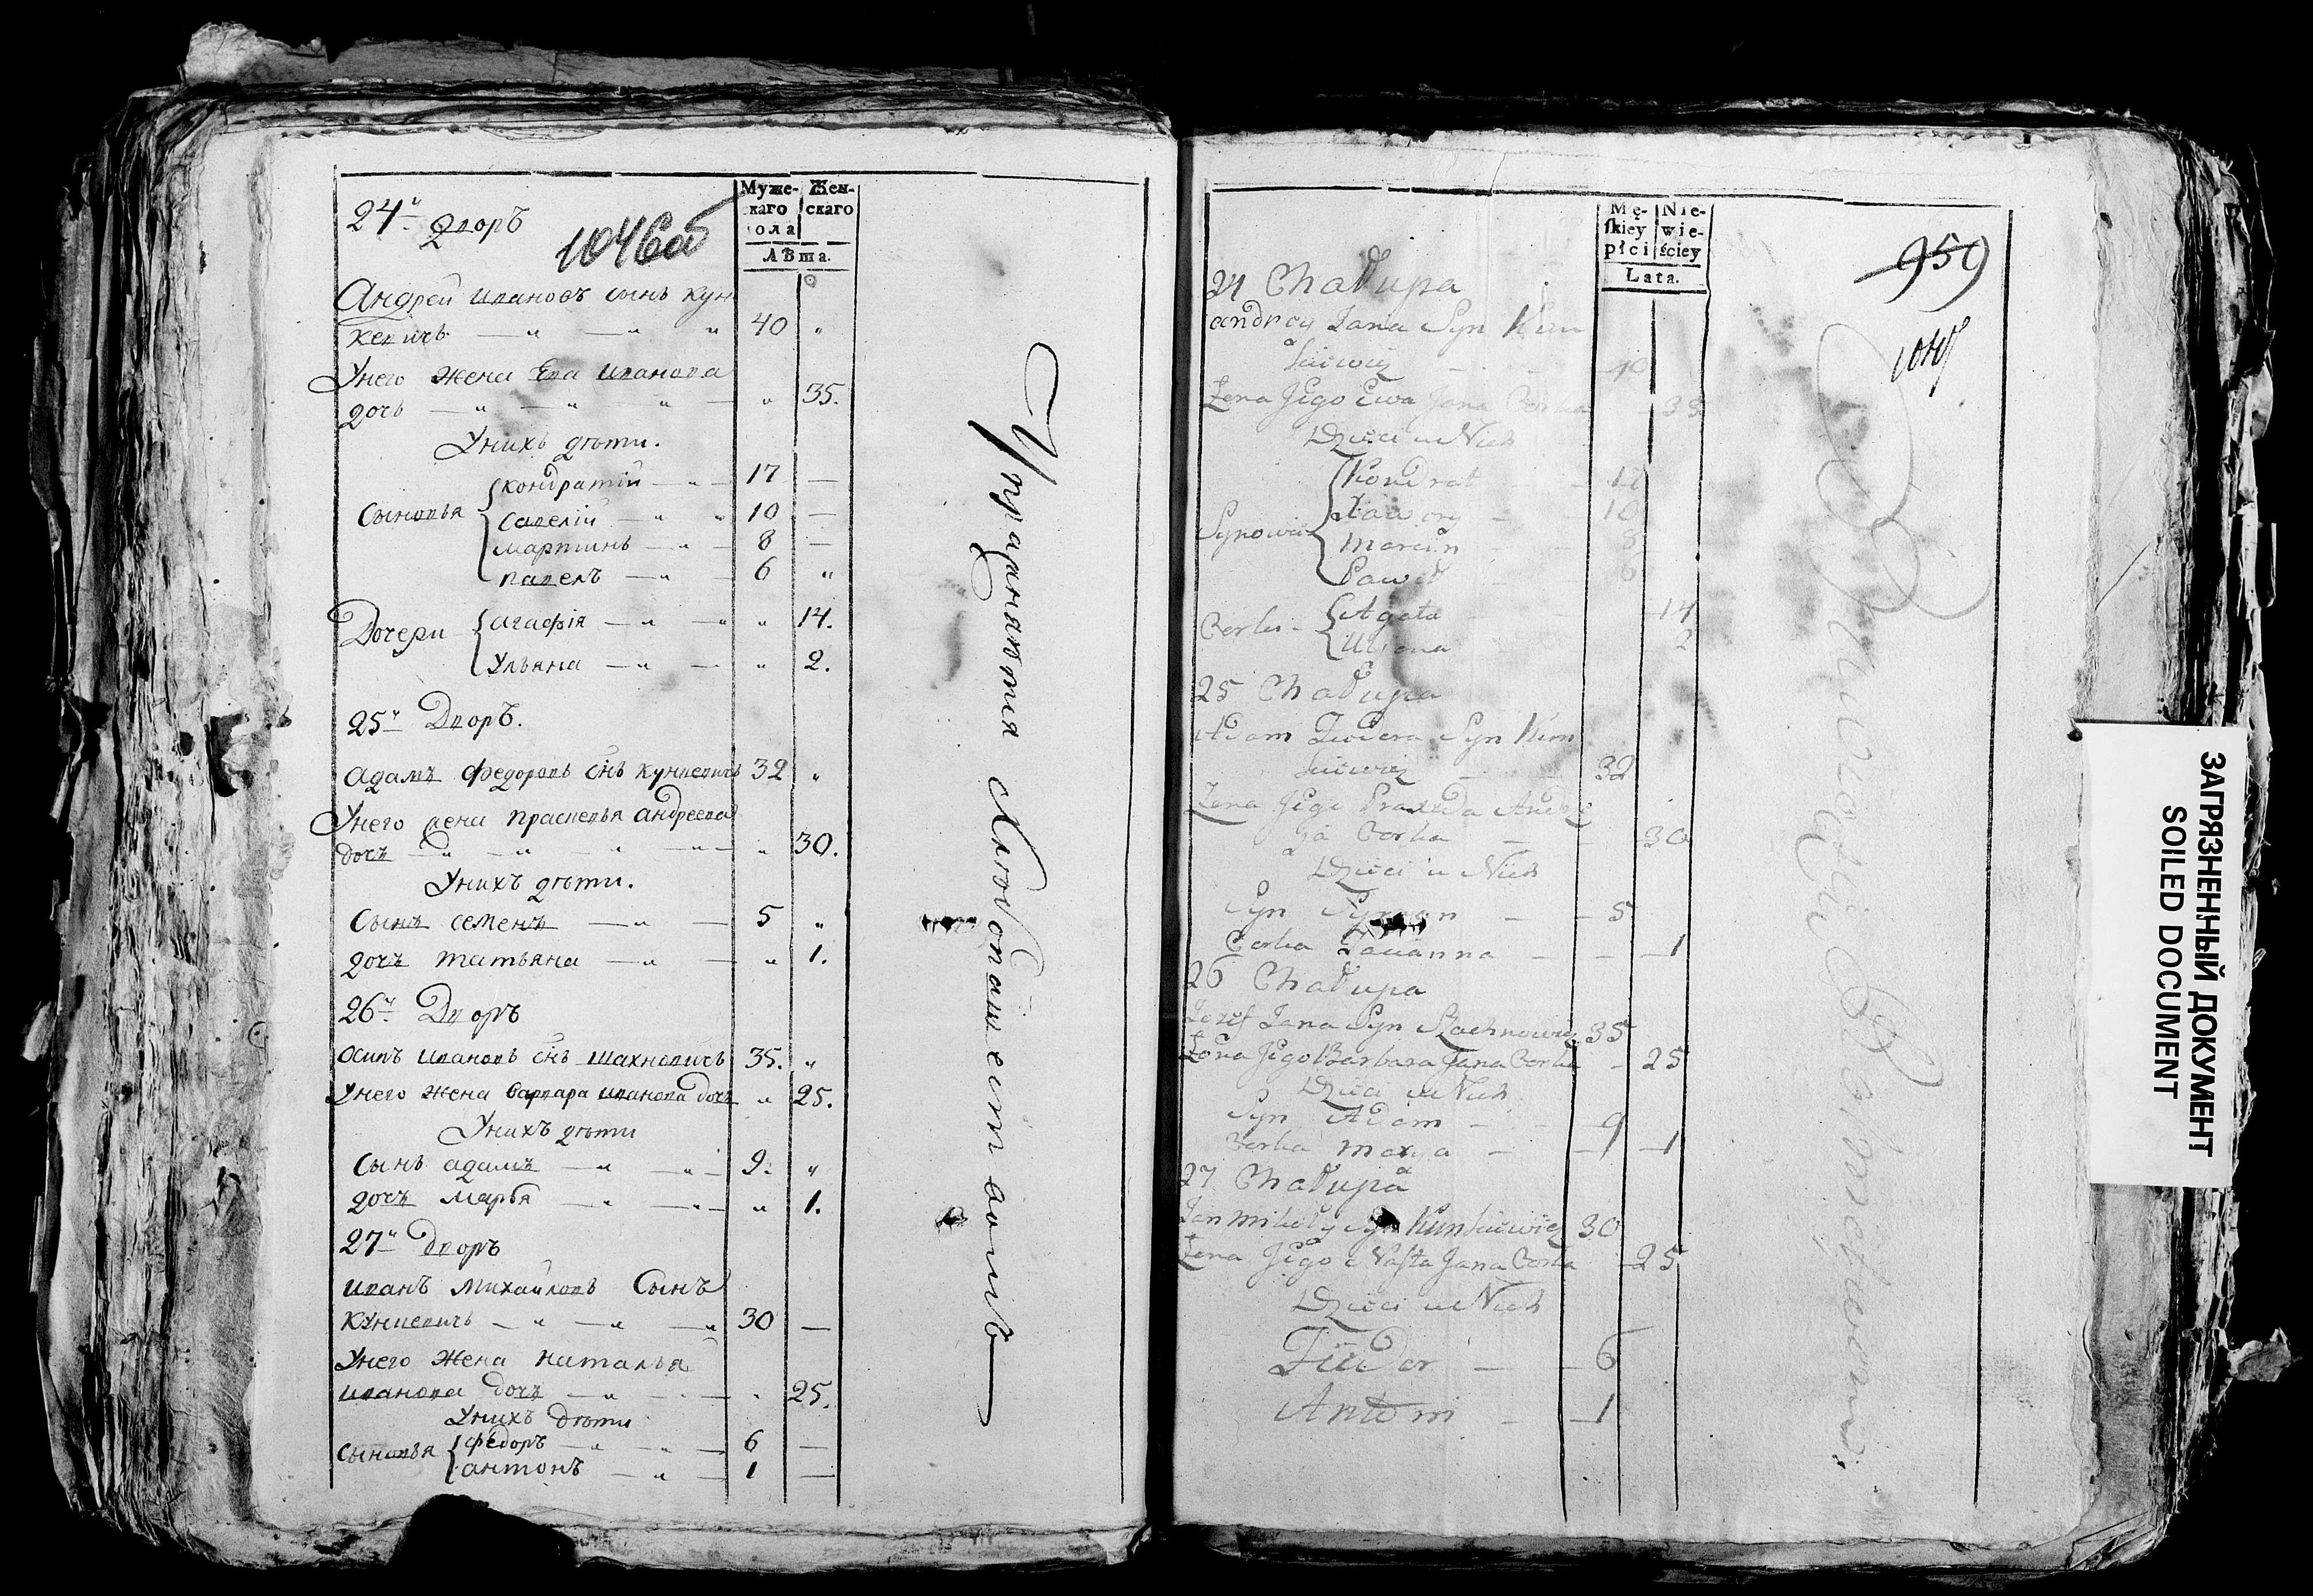 24й Дворъ
1046об
Муже- Жен-
каго скаго
ола
Лѣта.
Андрей Ивановъ сынъ Кун
кевичъ — „ — „ „ 40 „
Унего жена Ева Иванова
дочь — „ — „ „ — „ 35.
Унихъ дѣти.
Кондратій — „ — 17 —
Сыновья Савелій — „ „ 10 —
Мартинъ — „ — 8 —
Павелъ — „ — 6 „
Дочери Агафія — „ — „ „ 14.
Ульяна — „ — „ 2.
25й Дворъ.
Адамъ Федоровъ снъ Кунцевичъ 32 „
Унего жена Прасковья Андреева
дочь — „ — „ „ — „ — „ 30.
Унихъ дѣти.
Сынъ Семенъ — „ — 5 „
дочь Татьяна — „ — „ 1.
26й Дворъ
Осипъ Ивановъ снъ Шахновичъ 35. „
Унего жена Варвара Иванова дочь „ 25.
Унихъ дѣти
Сынъ Адамъ — „ — „ — 9. „
дочь Марья — „ — „ — „ 1.
27й Дворъ
Иванъ Михайловъ Сынъ
Кунцевичъ — „ — „ — „ 30 —
Унего жена Наталья
Иванова дочь — „ — „ — „ 25.
Унихъ дѣти
Сыновья Федоръ — „ — „ — 6 —
Антонъ — „ — 1 —
Упражняются Хлебопашествомъ
Mę- Nie-
ſkiey wie-
płci ściey
Lata.
959
24 Chałupa
Andrey Jana Syn Kun
40
Żena Jego Ewa Jana Corka — 35
Dzieci u Nich
Kondrat — 17
Synowie 10
Marcin — 8
Paweł 6
Corki - Agata 14
Uliana 2
25 Chałupa
Adam Fiedora Syn Kun
32
Żena Jego Praxeda Andrze
ja Corka 30
Dzieci u Nich
Syn Symon — 5
Corka Tacianna — 1
26 Chałupa
Jozef Jana Syn Szachnowicz 35
Żona Jego Barbara Jana Corka — 25
Dzieci u Nich
Syn Adam — 9
Corka Marya — 1
27 Chałupa
Jan Mikołay Syn Kuncewicz 30
Żena Jego Nasta Jana Corka — 25
Dzieci u Nich
Fiedor — 6
Antoni — 1
ЗАГРЯЗНЕННЫЙ ДОКУМЕНТ
SOILED DOCUMENT